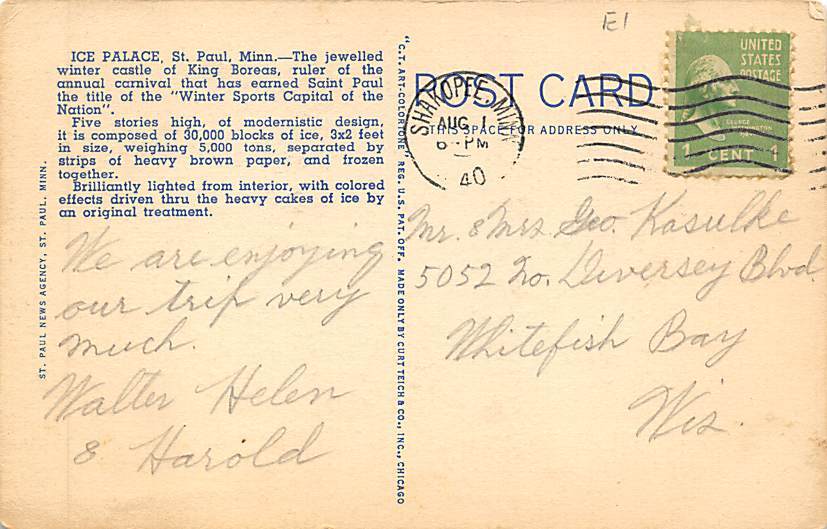 E1
ICE PALACE, St. Paul, Minn.—The jewelled
winter castle of King Boreas, ruler of the
annual carnival that has earned Saint Paul
the title of the "Winter Sports Capital of the
Nation".
Five stories high, of modernistic design,
it is composed of 30,000 blocks of ice, 3x2 feet
in size, weighing 5,000 tons, separated by
strips of heavy brown paper, and frozen
together.
Brilliantly lighted from interior, with colored
effects driven thru the heavy cakes of ice by
an original treatment.
We are enjoying
our trip very
much.
Walter Helen
& Harold
ST. PAUL NEWS AGENCY, ST. PAUL, MINN.
"C.T. ART-COLORTONE" REG. U.S. PAT. OFF. MADE ONLY BY CURT TEICH & CO., INC., CHICAGO
POST CARD
THIS SPACE FOR ADDRESS ONLY
SHAKOPEE, MINN.
AUG 1
6-PM
40
UNITED
STATES
POSTAGE
GEORGE
WASHINGTON
1 CENT 1
Mr. & Mrs. Geo. Kasulke
5052 No. Diversey Blvd.
Whitefish Bay
Wis.